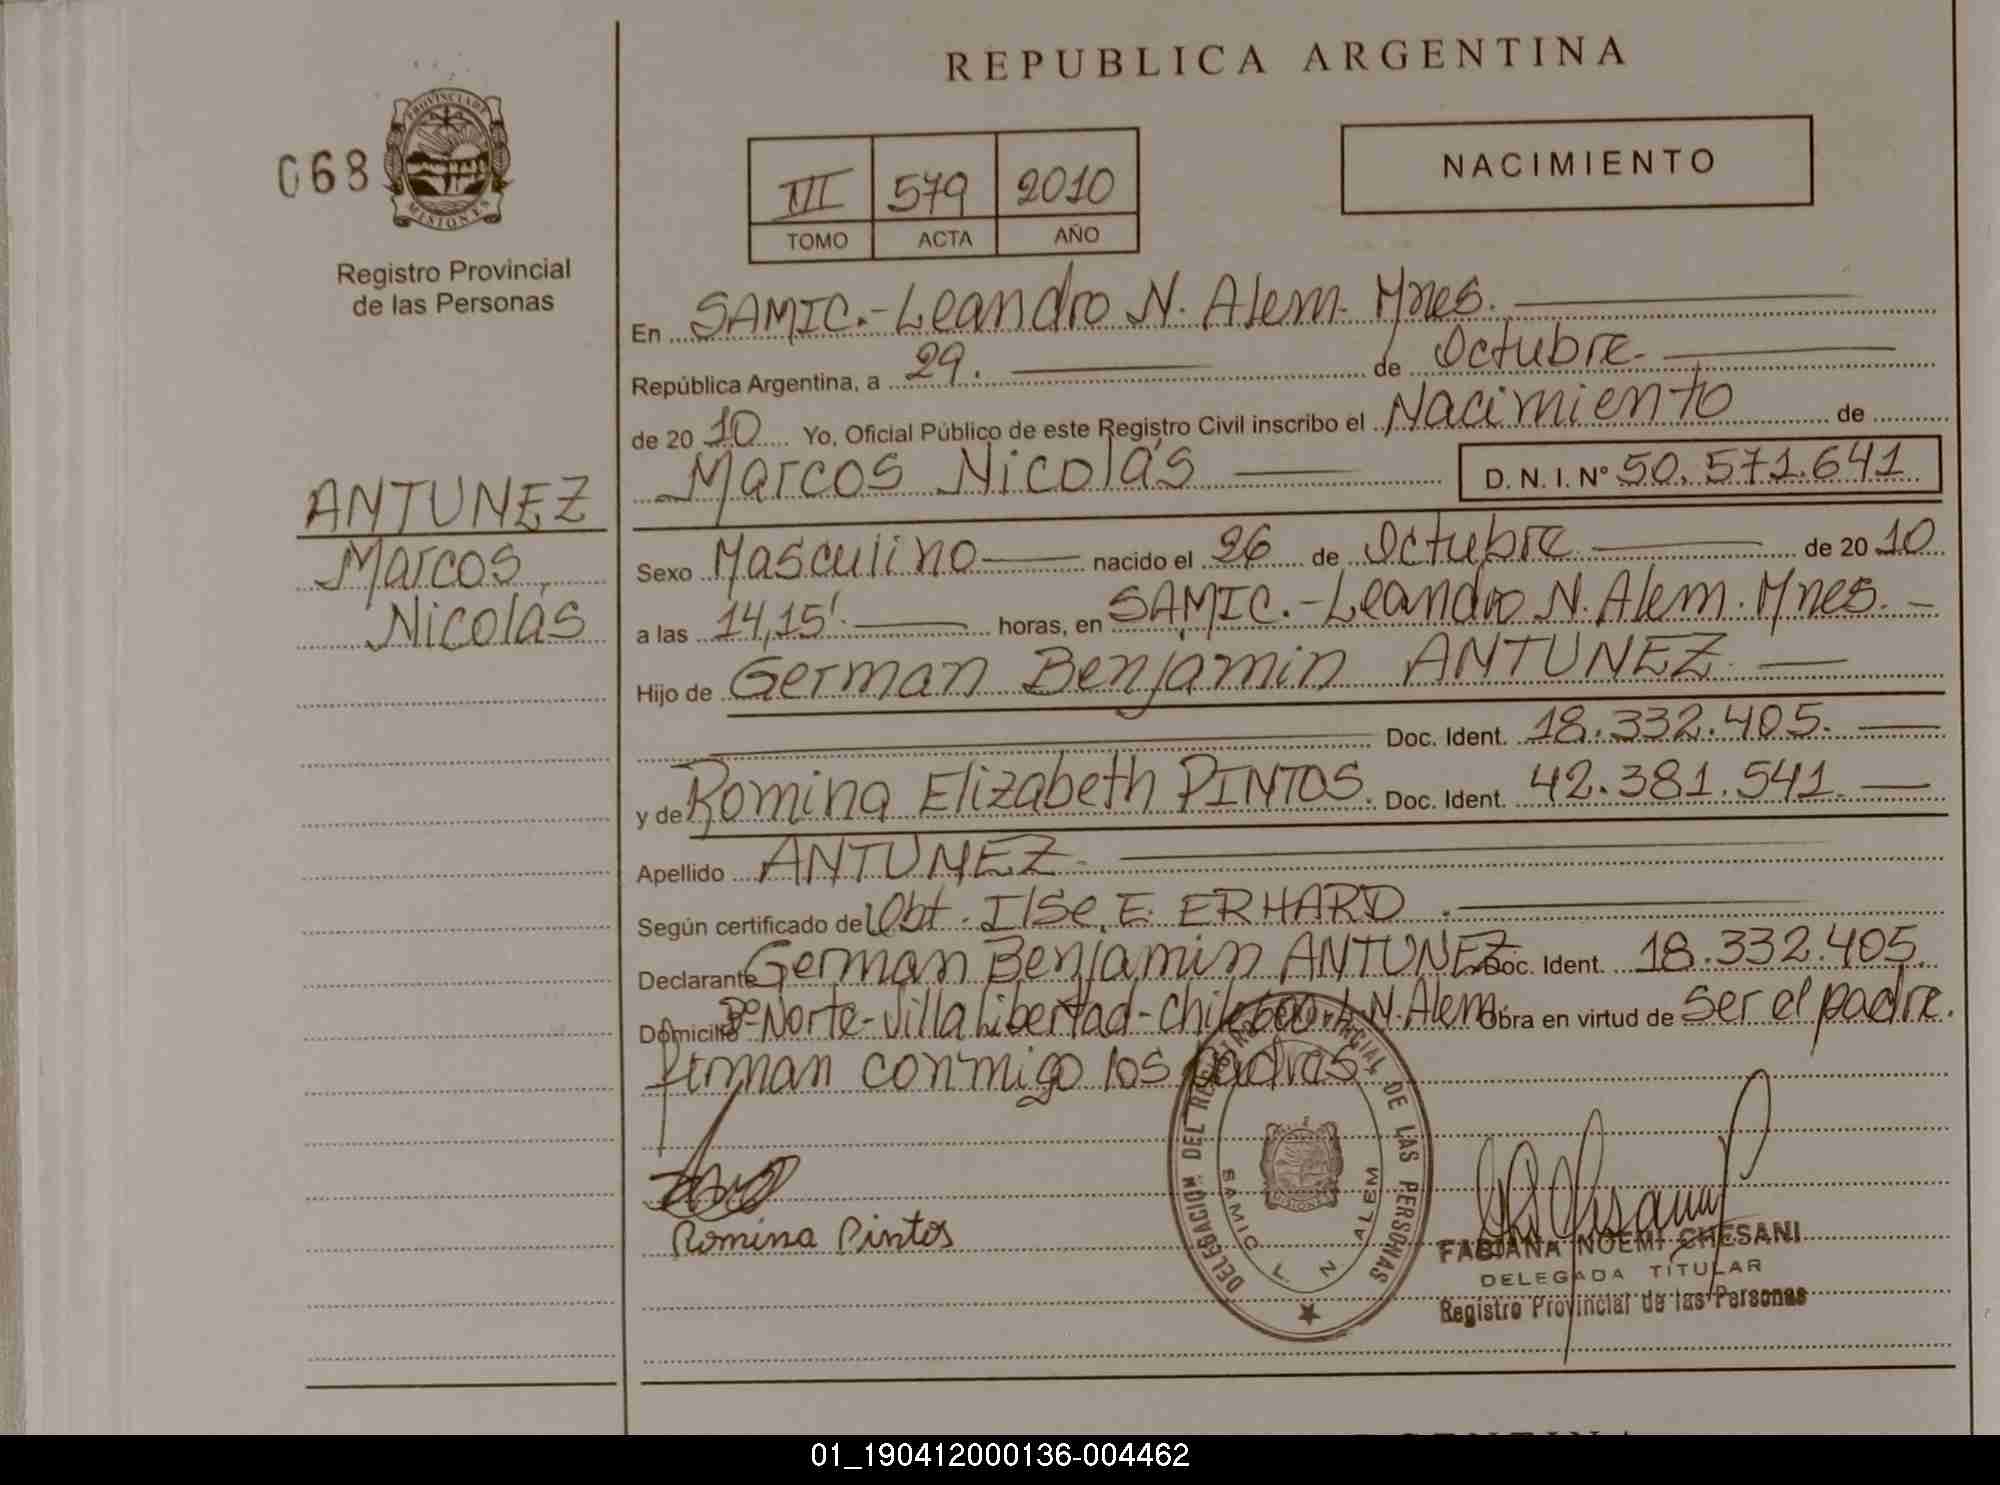 REPUBLICA ARGENTINA
068
PROVINCIA DE
MISIONES
Registro Provincial
de las Personas
III 579 2010
TOMO ACTA AÑO
NACIMIENTO
En SAMIC.-Leandro N. Alem. Mnes.
República Argentina, a 29. de Octubre.
de 20 10 Yo, Oficial Público de este Registro Civil inscribo el Nacimiento de
Marcos Nicolás D. N. I. Nº 50.571.641
ANTUNEZ
Marcos
Nicolás
Sexo Masculino nacido el 26 de Octubre de 20 10
a las 14,15'. horas, en SAMIC.-Leandro N. Alem. Mnes.
Hijo de German Benjamin ANTUNEZ.
Doc. Ident. 18.332.405.
y de Romina Elizabeth PINTOS. Doc. Ident. 42.381.541.
Apellido ANTUNEZ.
Según certificado de Obt. Ilse. E. ERHARD.
Declarante German Benjamin ANTUNEZ Doc. Ident. 18.332.405.
Domicilio Bº Norte-Villa Libertad- L.N. Alem. Obra en virtud de Ser el padre.
firman conmigo los padres
DELEGACION DEL REGISTRO PROVINCIAL DE LAS PERSONAS
SAMIC L. N. ALEM
MISIONES
Romina Pintos
FABIANA NOEMI CHESANI
DELEGADA TITULAR
Registro Provincial de las Personas
01_190412000136-004462